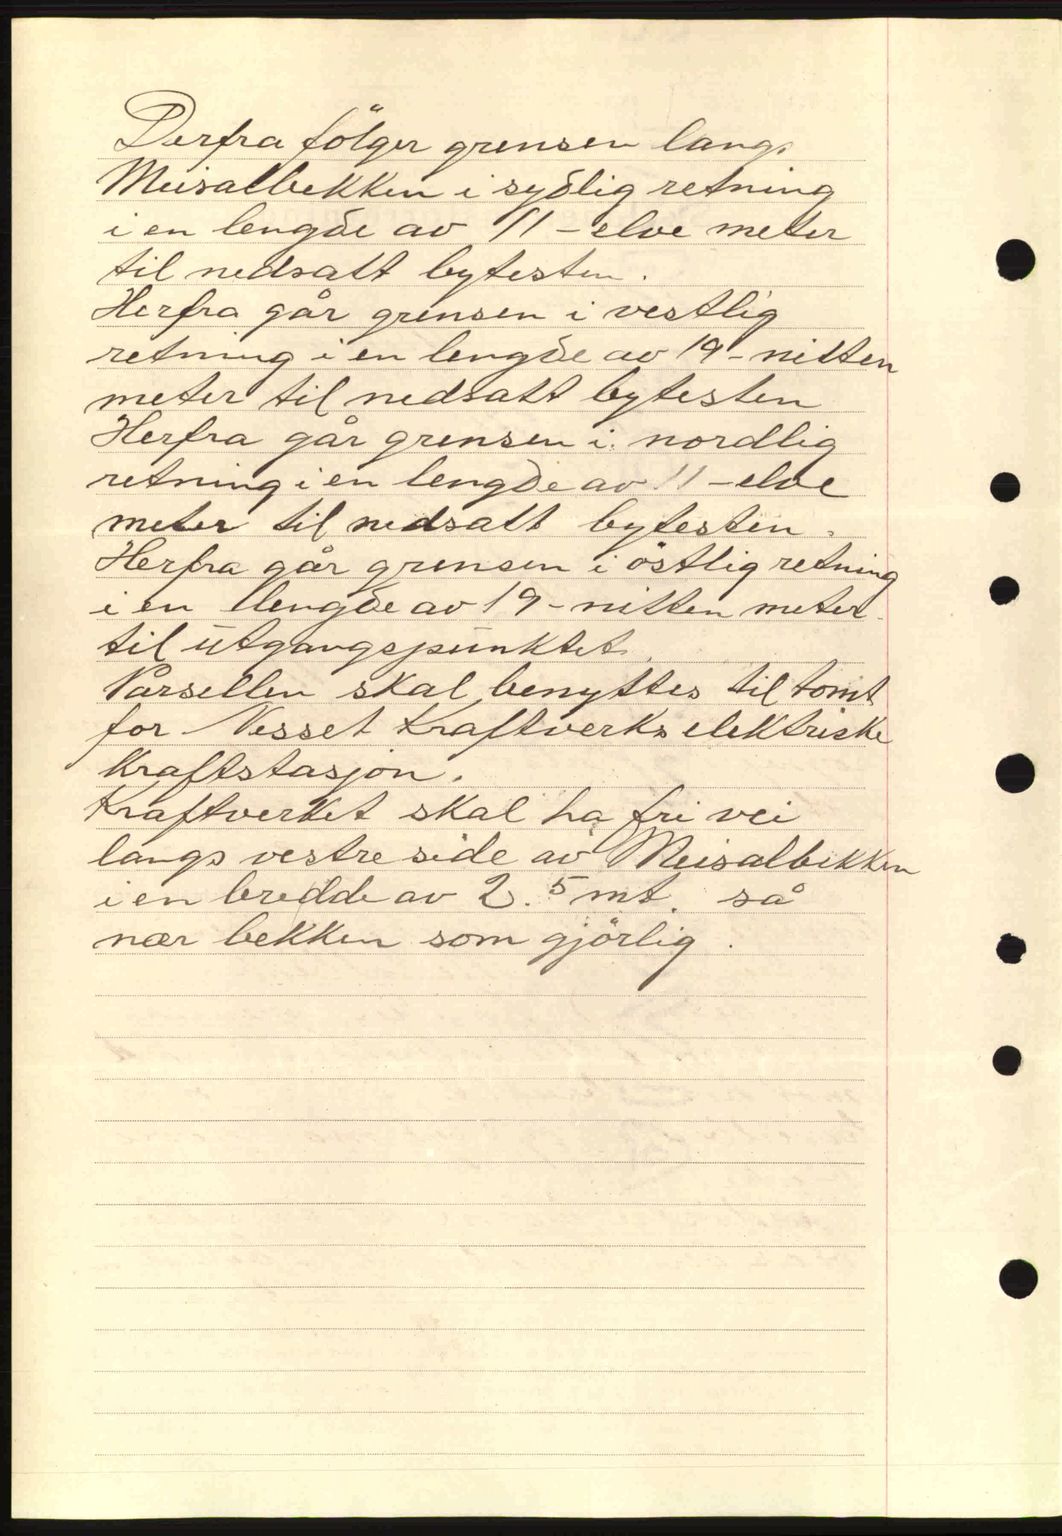 Derfra följer grensen langs
Meisalbekken i sydlig retning
i en lengde av 11 - elve meter
til nedsatt bytesten.
Herfra går grensen i vestlig
retning i en lengde av 19 - nitten
meter til nedsatt bytesten
Herfra går grensen i nordlig
retning i en lengde av 11 - elve
meter til nedsatt bytesten.
Herfra går grensen i östlig retning
i en lengde av 19 - nitten meter
til utgangspunktet.
Parsellen skal benyttes til tomt
for Nesset Kraftverks elektriske
Kraftstasjon.
Kraftverket skal ha fri vei
langs vestre side av Meisalbekken
i en bredde av 2.5 mt. så
nær bekken som gjörlig.